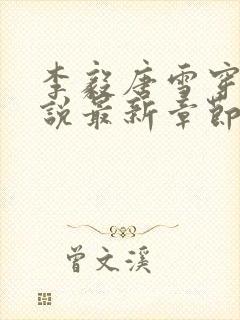 李毅唐雪穿
说最新章節
曾文溪